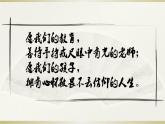 愿我们的教育，
善待手持戒尺眼中有光的老师；
愿我们的孩子，
拥有心怀敬畏不失信仰的人生。